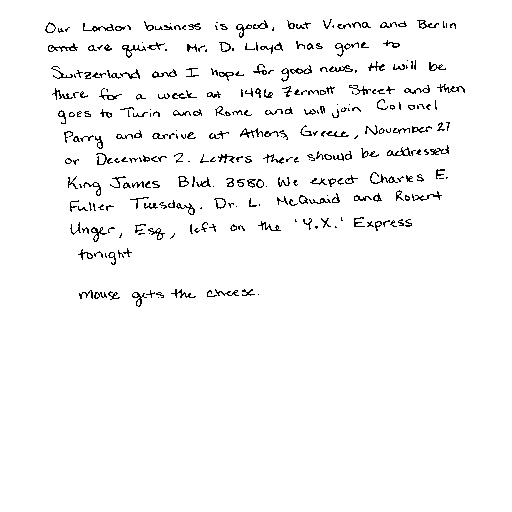 Our London business is good, but Vienna and Berlin
are quiet. Mr. D. Lloyd has gone to
Switzerland and I hope for good news. He will be
there for a week at 1496 Zermott Street and then
goes to Turin and Rome and will join Colonel
Parry and arrive at Athens, Greece, November 27
or December 2. Letters there should be addressed
King James Blvd. 3580. We expect Charles E.
Fuller Tuesday. Dr. L. McQuaid and Robert
Unger, Esq., left on the 'Y.X.' Express
tonight
mouse gets the cheese.